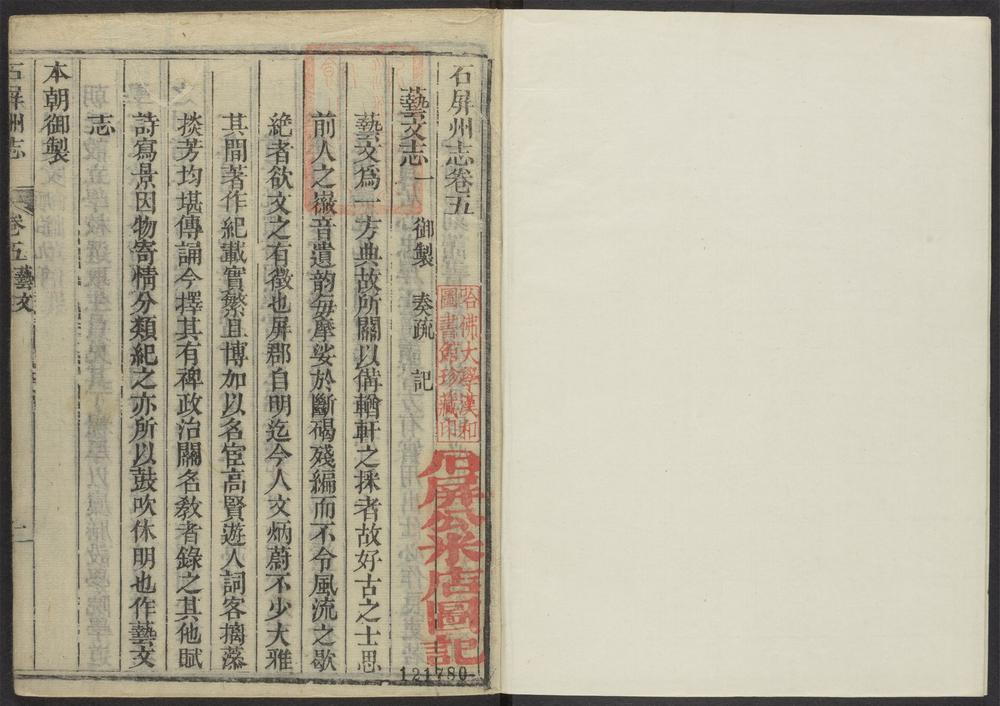 石屏州志卷五
藝文志一 御製 奏疏 記
藝文爲一方典故所關以備輶軒之採者故好古之士思
前人之徽音遺韵每摩娑於斷碣殘編而不令風流之歇
絶者欲文之有徵也屏郡自明迄今人文炳蔚不少大雅
其間著作紀載實繁且博加以名宦高賢遊人詞客摛藻
掞芳均堪傳誦今擇其有裨政治關名教者錄之其他賦
詩寫景因物寄情分類紀之亦所以鼓吹休明也作藝文
志
本朝御製
石屏州志 卷五 藝文 一
哈佛大學漢和
圖書館珍藏印
石屏公米店圖記
121780